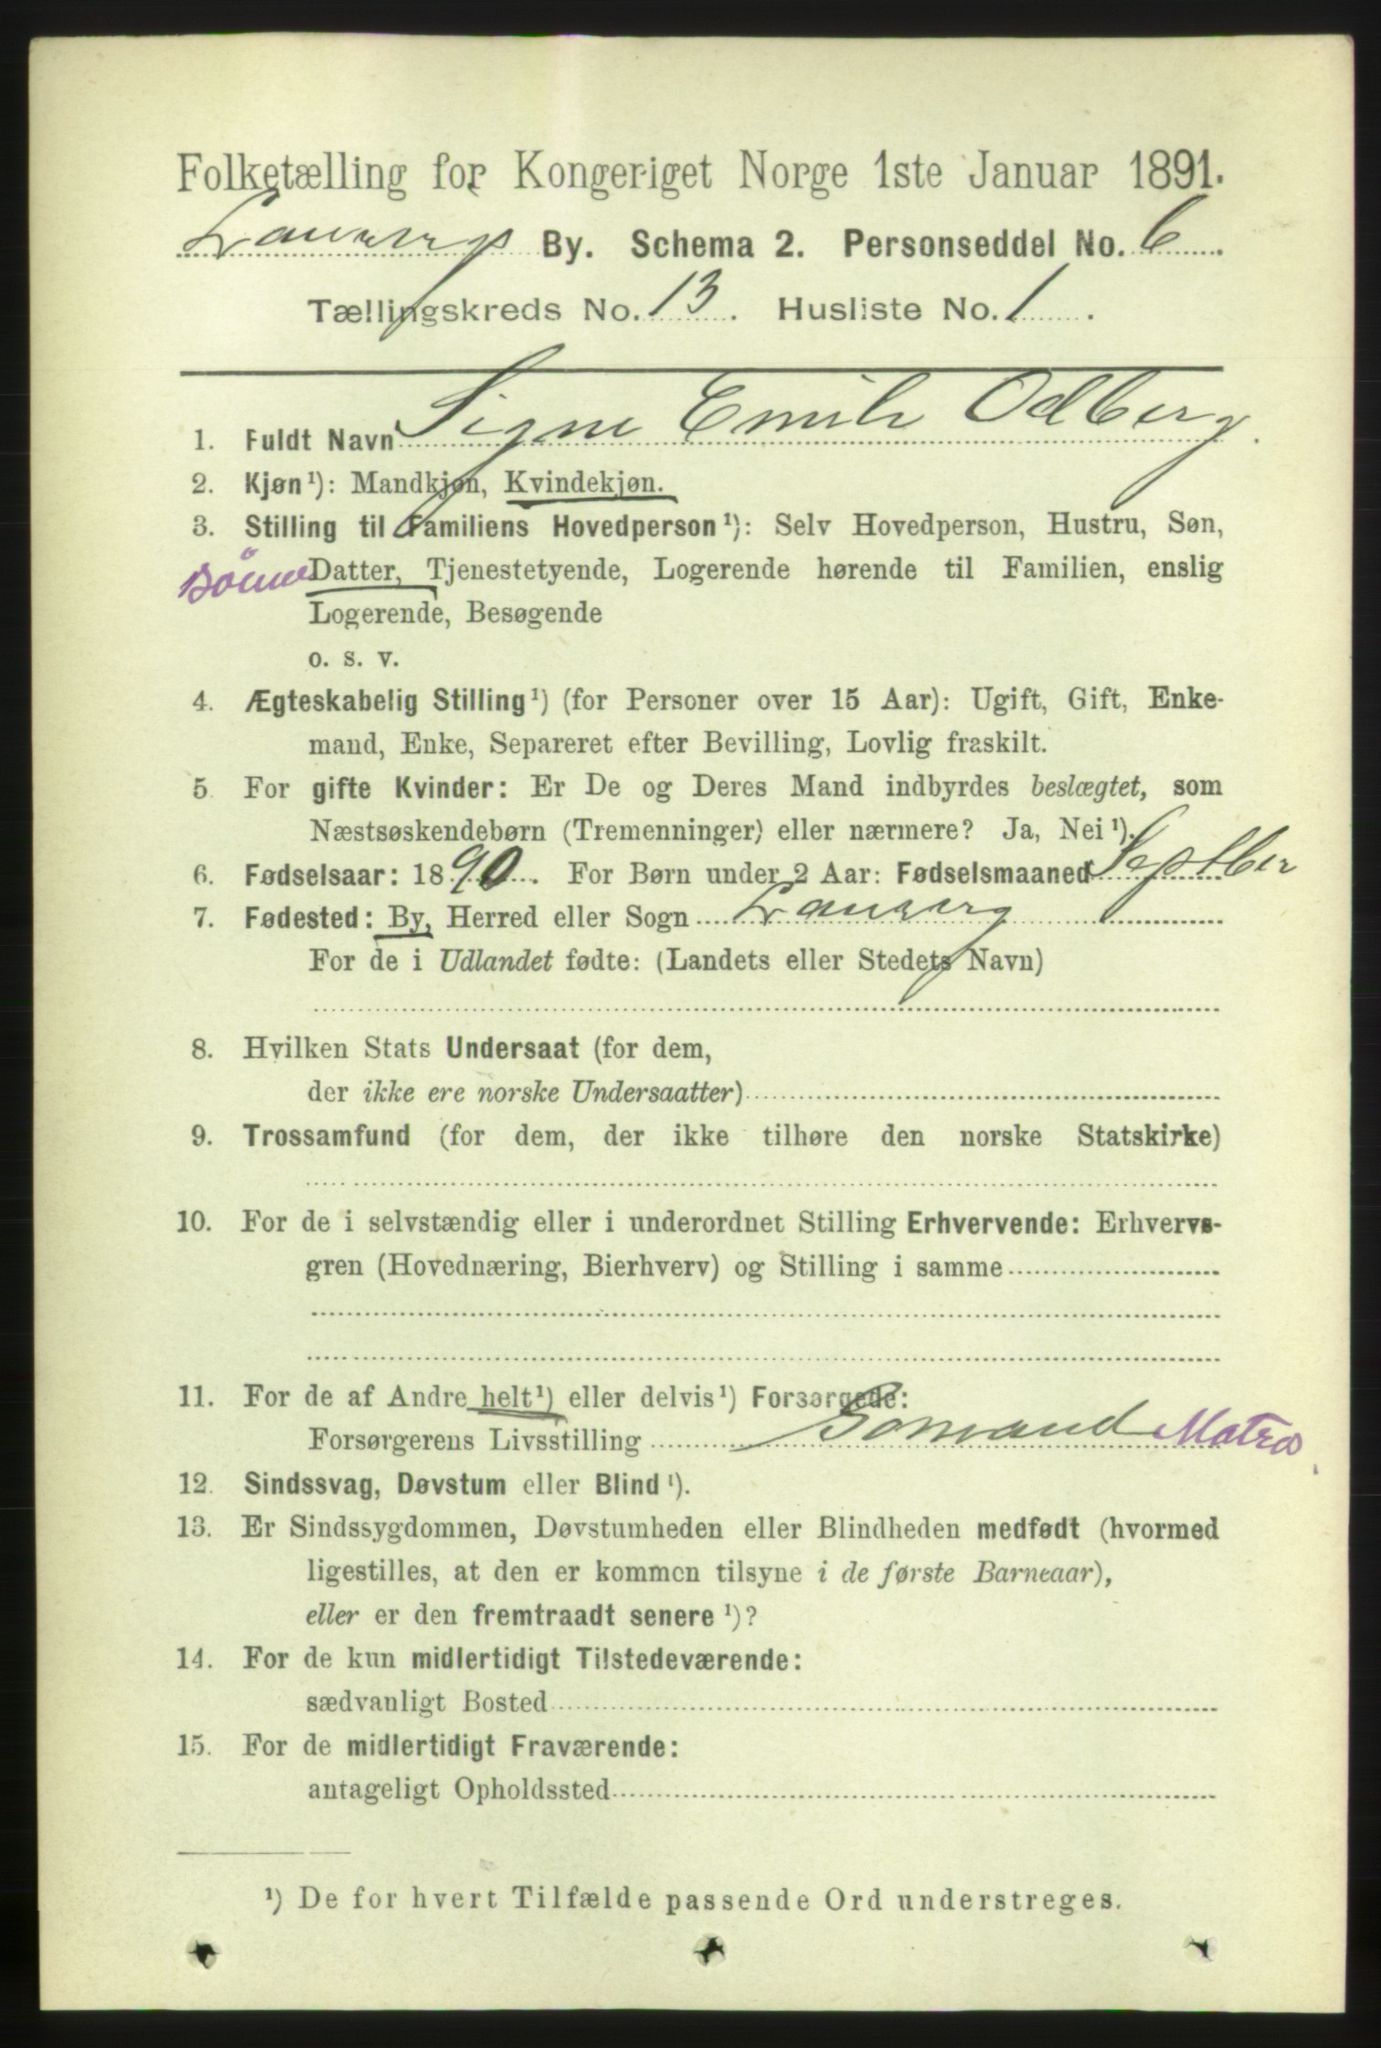 Folketælling for Kongeriget Norge 1ste Januar 1891.
By. Schema 2. Personseddel No. 6
Tællingskreds No. 13. Husliste No. 1.
1. Fuldt Navn Signe Emilie Odberg.
2. Kjøn¹): Mandkjøn, Kvindekjøn.
3. Stilling til Familiens Hovedperson¹): Selv Hovedperson, Hustru, Søn,
Datter, Tjenestetyende, Logerende hørende til Familien, enslig
Logerende, Besøgende
o. s. v.
4. Ægteskabelig Stilling¹) (for Personer over 15 Aar): Ugift, Gift, Enke-
mand, Enke, Separeret efter Bevilling, Lovlig fraskilt.
5. For gifte Kvinder: Er De og Deres Mand indbyrdes beslægtet, som
Næstsøskendebørn (Tremenninger) eller nærmere? Ja, Nei¹).
6. Fødselsaar: 1890. For Børn under 2 Aar: Fødselsmaaned Septber
7. Fødested: By, Herred eller Sogn
For de i Udlandet fødte: (Landets eller Stedets Navn)
8. Hvilken Stats Undersaat (for dem,
der ikke ere norske Undersaatter)
9. Trossamfund (for dem, der ikke tilhøre den norske Statskirke)
10. For de i selvstændig eller i underordnet Stilling Erhvervende: Erhvervs-
gren (Hovednæring, Bierhverv) og Stilling i samme
11. For de af Andre helt¹) eller delvis¹) Forsørgede:
Forsørgerens Livsstilling Sømand Matros
12. Sindssvag, Døvstum eller Blind¹).
13. Er Sindssygdommen, Døvstumheden eller Blindheden medfødt (hvormed
ligestilles, at den er kommen tilsyne i de første Barneaar),
eller er den fremtraadt senere¹)?
14. For de kun midlertidigt Tilstedeværende:
sædvanligt Bosted
15. For de midlertidigt Fraværende:
antageligt Opholdssted
¹) De for hvert Tilfælde passende Ord understreges.